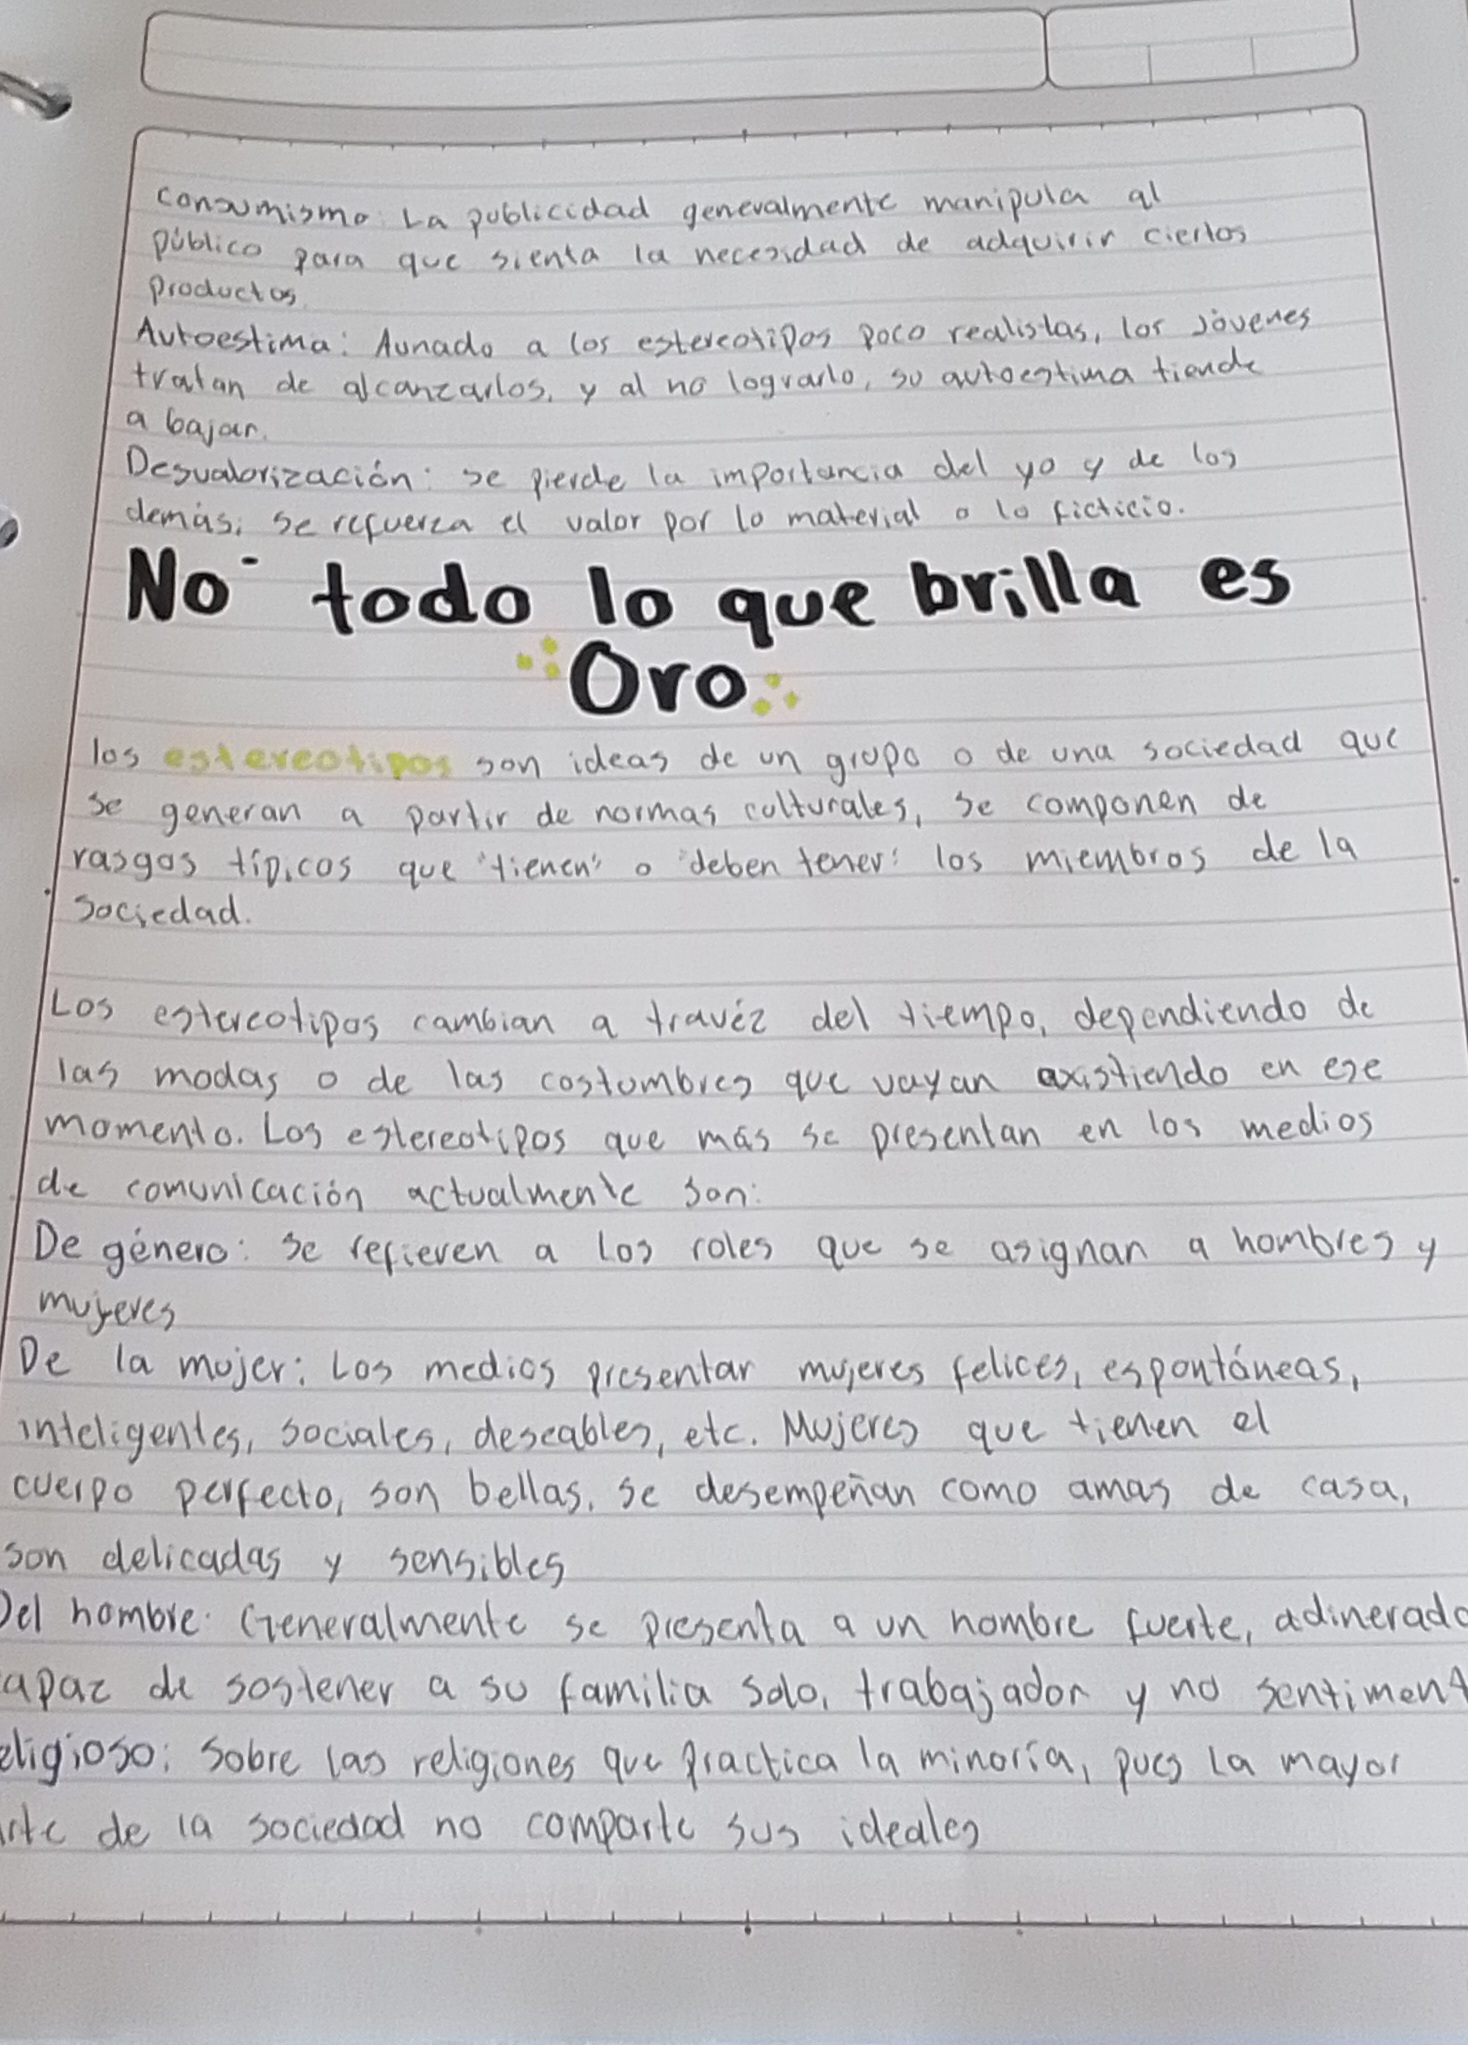 consumismo: La publicidad generalmente manipula al
público para que sienta la necesidad de adquirir ciertos
productos.
Autoestima: Aunado a los estereotipos poco realistas, los jóvenes
tratan de alcanzarlos, y al no lograrlo, su autoestima tiende
a bajar.
Desvalorización: se pierde la importancia del yo y de los
demás; se refuerza el valor por lo material o lo ficticio.
No todo lo que brilla es
Oro
los estereotipos son ideas de un grupo o de una sociedad que
se generan a partir de normas culturales, se componen de
rasgos típicos que "tienen" o "deben tener" los miembros de la
sociedad.
Los estereotipos cambian a travéz del tiempo, dependiendo de
las modas o de las costumbres que vayan axistiendo en ese
momento. Los estereotipos que más se presentan en los medios
de comunicación actualmente son:
De género: se refieren a los roles que se asignan a hombres y
mujeres
De la mujer: Los medios presentar mujeres felices, espontáneas,
inteligentes, sociales, deseables, etc. Mujeres que tienen el
cuerpo perfecto, son bellas, se desempeñan como amas de casa,
son delicadas y sensibles
Del hombre: Generalmente se presenta a un hombre fuerte, adinerado
apaz de sostener a su familia solo, trabajador y no sentiment
eligioso: Sobre las religiones que practica la minoría, pues la mayor
rte de la sociedad no comparte sus ideales